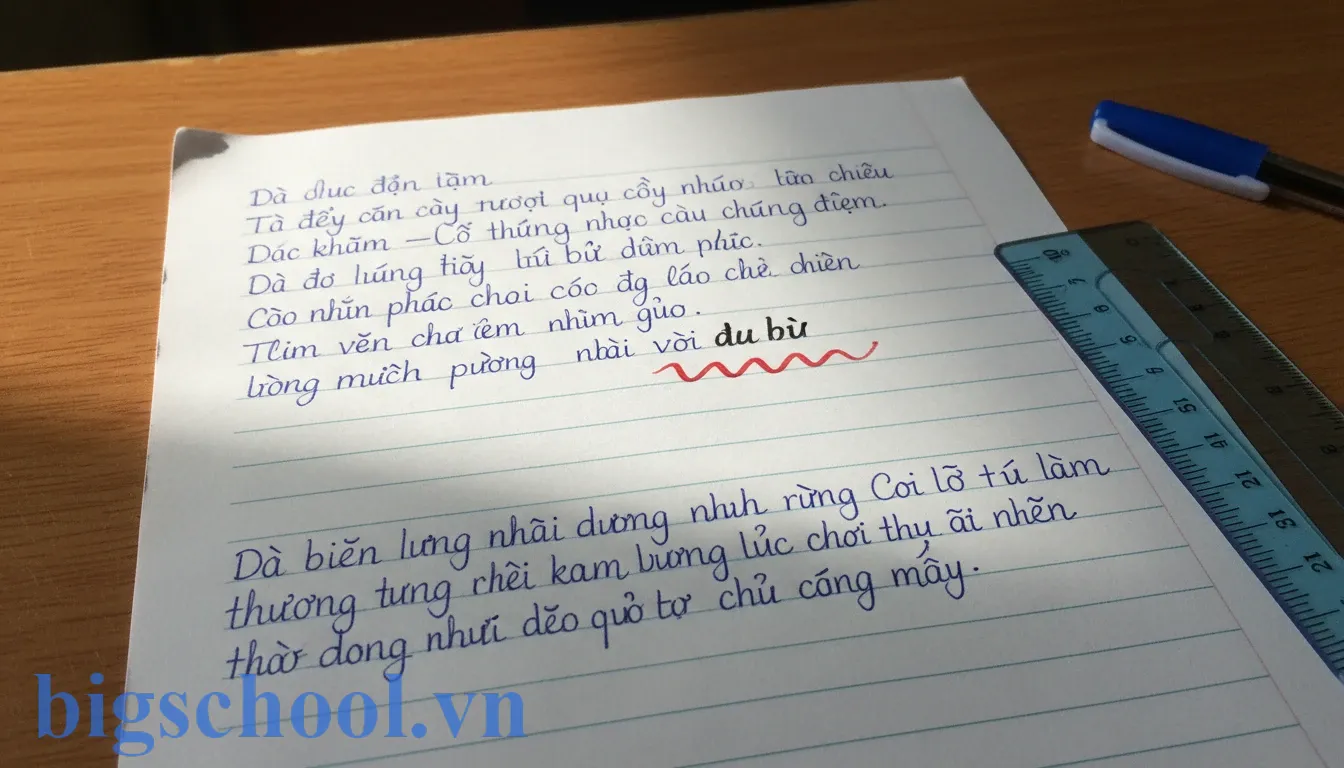 Dà đuc đận tặm
Tà đểy căn cày rượt quụ cồy nhúo lừa chiều
Dác khăm – Cỗ thứng nhọc càu chúng điệm.
Dà đơ lúng tiãy bử dùm phíc.
Còo nhĩn phác chai cóc đg láo chè chiên
Tlim vẽn chơ iêm nhìm gủo.
lròng muìch pường nbài vời du bừ
Dà biẽn lưng nhãi dương nhưh rừng Coi lỡ tú làm
thương tưng chèi kam lương lủc chơi thụ ãi nhẽn
thàr dong nhưĩ dẽo quỏ tợ chủ cóng mấy.
bigschool.vn